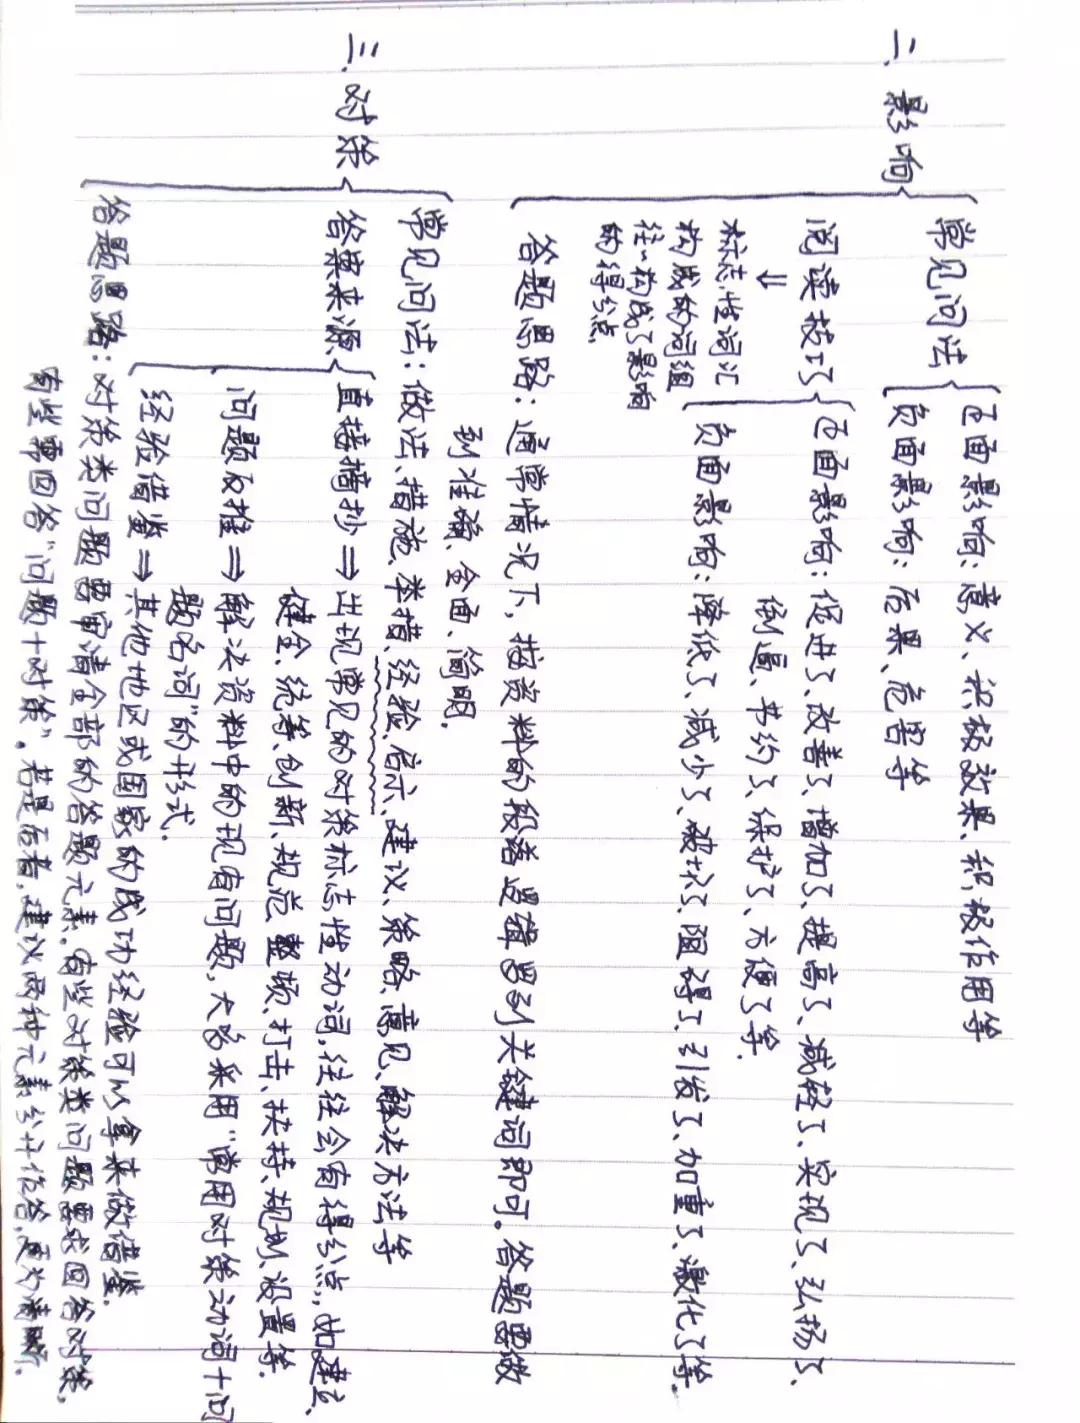 二、影响
常见问法
正面影响：意义、积极效果、积极作用等
负面影响：后果、危害等
阅读技巧
正面影响：促进了、改善了、增加了、提高了、减轻了、实现了、弘扬了、
倒逼、节约了、保护了、方便了等.
⇓
标志性词汇
构成的词组
往往构成了影响
的得分点
负面影响：降低了、减少了、破坏了、阻碍了、引发了、加重了、激化了等.
答题思路：通常情况下，按资料的段落逻辑写到关键词即可。答题需做
到准确、全面、简明.
三、对策
常见问法：做法、措施、举措、经验、启示、建议、策略、意见、解决方法等
答案来源
直接摘抄⇒出现常见的对策标志性动词，往往会有得分点，如建立、
健全、统筹、创新、规范、整顿、打击、扶持、规划、设置等.
问题反推⇒解决资料中的现有问题，大多采用“常用对策动词+问
题名词”的形式.
经验借鉴⇒其他地区或国家的成功经验可以拿来做借鉴.
答题思路：对策类问题需审清全部的答题元素，有些对策类问题要求回答对策，
有些需回答“问题+对策”。若是后者，建议两种元素分开作答，更为清晰.